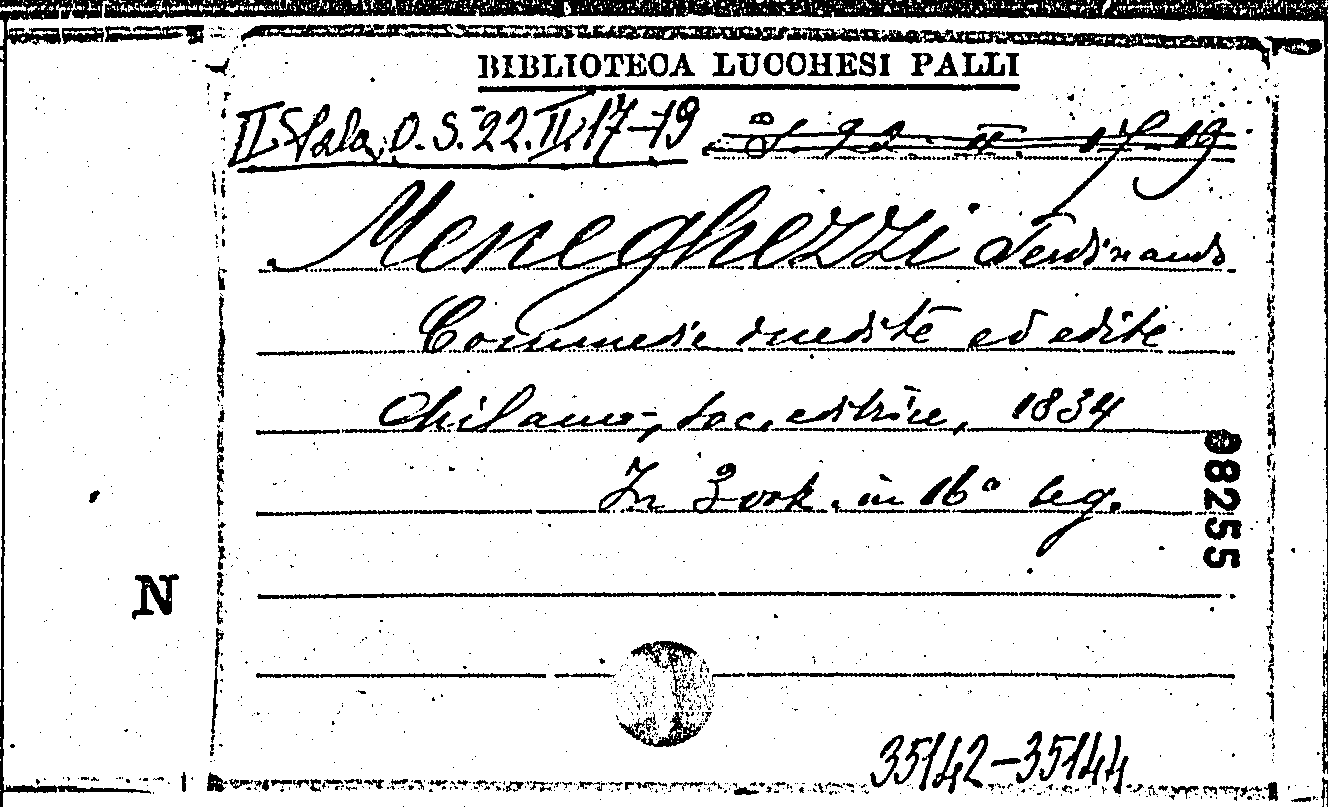 BIBLIOTECA LUCCHESI PALLI
II Sala O. S. 22. II. 17-19 S. 22. II. 17-19
Meneghezzi Ferdinando
Commedie inedite ed edite
Milano, soc. editrice, 1834
In 3 vol. in 16° leg.
98255
N
35142-35144